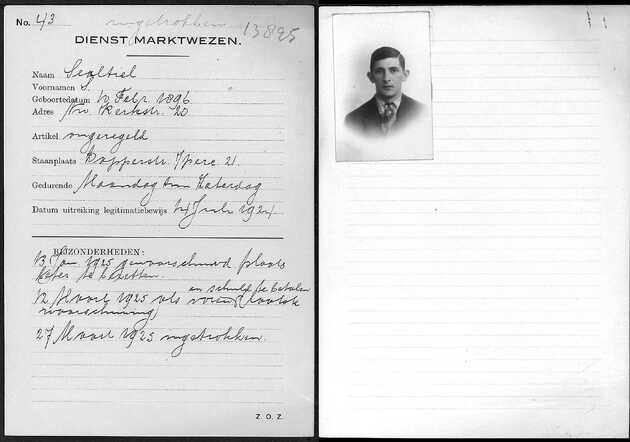 No. 43 ingetrokken 13895
DIENST MARKTWEZEN.
Naam Sealtiel
Voornamen S.
Geboortedatum 10 Febr 1896
Adres Nw. Kerkstr. 20
Artikel ongeregeld
Staanplaats Dapperstr. perc 21.
Gedurende Maandag t/m Zaterdag
Datum uitreiking legitimatiebewijs 14 Juli 1924
BIJZONDERHEDEN:
13 Jan 1925 gewaarschuwd plaats
beter te bezetten.
en schuld te betalen
12 Maart 1925 als voren laatste
waarschuwing
27 Maart 1925 ingetrokken.
Z. O. Z.